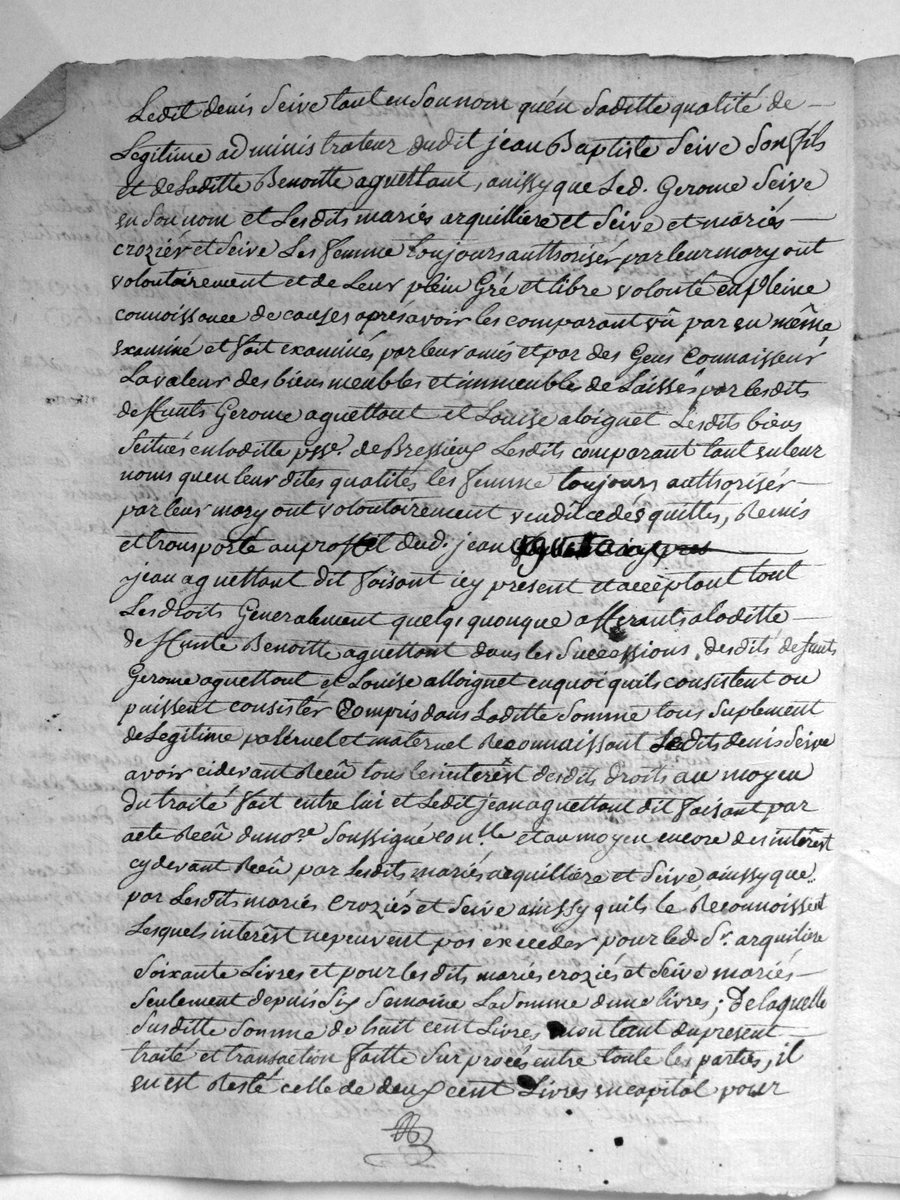 Ledit denis Seive tant en Son nom qu'en Saditte qualité de
Legitime administrateur dudit jean Baptiste Seive Son fils
et de Laditte Benoitte aguettant, ainssy que Led. Gerome Seive
en Son nom et Lesdits mariés arquilliere et Seive et mariés
croziér et Seive Les femme toujours authorisér par leur mary ont
volontairement et de Leur plein Gré et libre volonté en pleine
connoissance de causes aprés avoir les comparant vû par eu même
examiné et fait examinés par leur amis et par des Gens Connaisseur
La valeur des biens meubles et immeuble de Laissés par lesdits
defunts Gerome aguettant et Louise aloignet Lesdits biens
Scitués en laditte psse. de Bressieux Lesdits comparant tant en leur
noms qu'en leur dites qualités les femme toujours authorisér
par leur mary ont volontairement vendû cedés quittés, Remis
et transporté au proffit dud. jean
jean aguettant dit faisant icy present et acceptant tout
Les droits Generalement quelqu'quonque afferants a laditte
defunte Benoitte aguettant dans les Successions desdits defunts
Gerome aguettant et Louise alloignet en quoi qu'ils consistent ou
puissent consister Compris dans Laditte Somme tous Suplement
de Legitime paternel et maternel Reconnaissant Ledits denis Seive
avoir cidevant Reçû tous les interêt desdits droits au moyen
du traité fait entre lui et Ledit jean aguettant dit faisant par
acte Reçû du nore. Soussigné et au moyen encore des interêt
cy devant Reçû par Lesdits mariés arquilliere et Seive ainssy que
par Lesdits mariés Croziés et Seive ainssy quils le Reconnoissent
Lesquels interêt ne peuvent pas exceder pour led. Sr. arquiliere
Soixante Livres et pour lesdits mariés croziés et Seive mariés
Seulement depuis Six Semaine La Somme d'une livres; De laquelle
Susditte Somme de huit cent Livres montant du present
traité et transaction faitte Sur procés entre toute les parties, il
en est Resté celle de deux cent Livres en capital pour